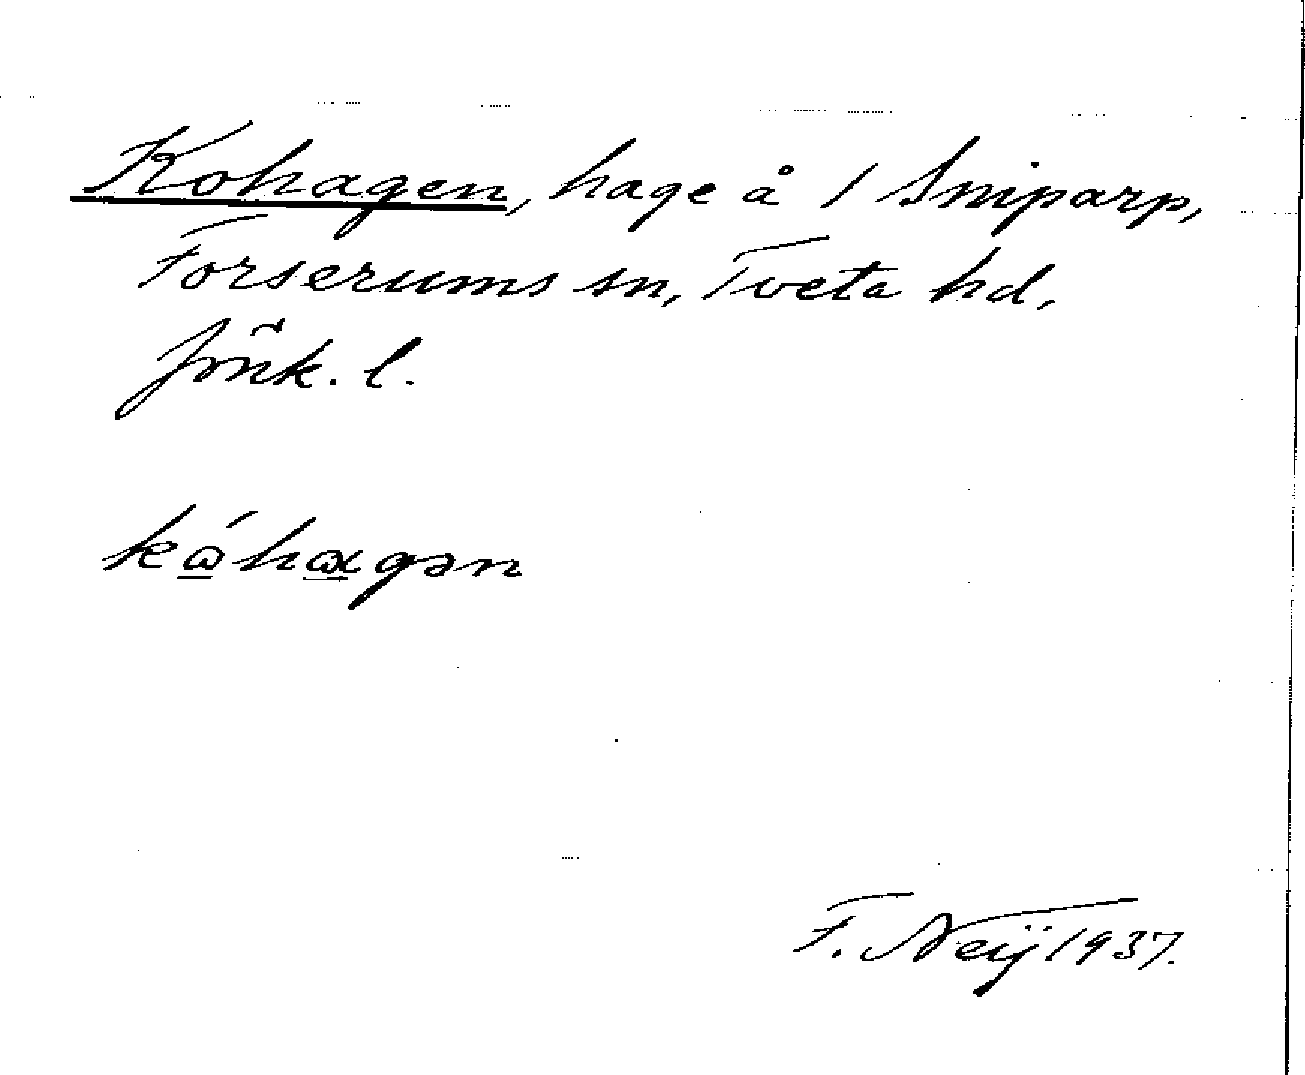 Kohagen, hage å 1 Sniparp,
Forserums sn, Tveta hd,
Jönk. l.
kώhαgən
F. Neij 1937.